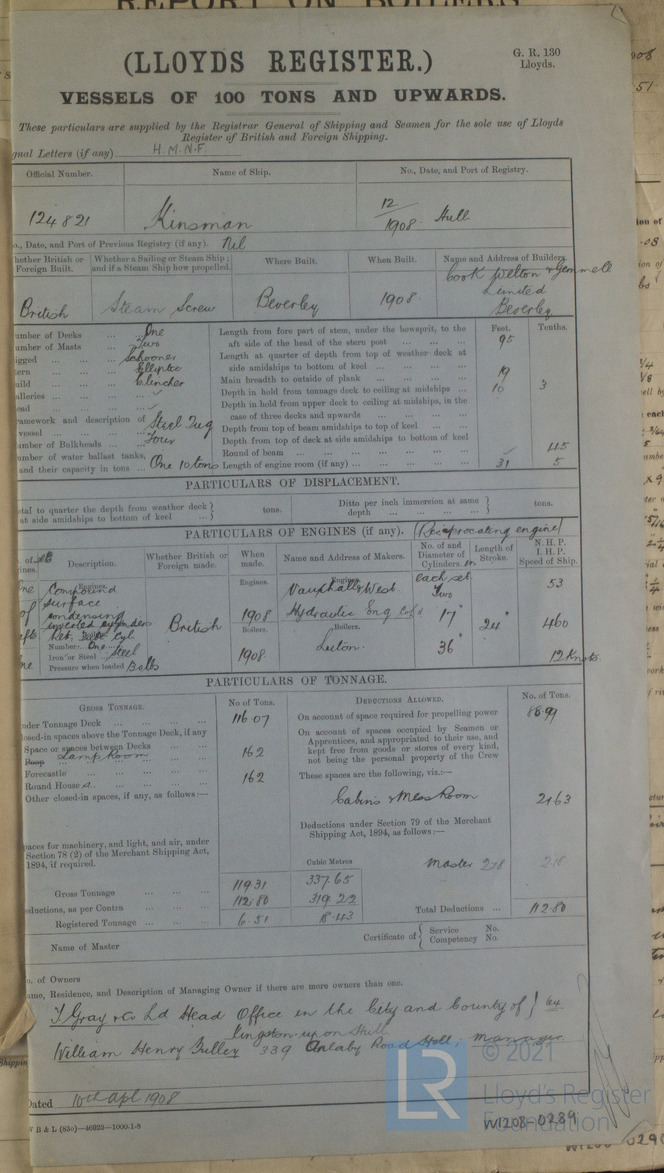 REPORT ON BOILERS
(LLOYDS REGISTER.)
G. R. 130
Lloyds.
VESSELS OF 100 TONS AND UPWARDS.
These particulars are supplied by the Registrar General of Shipping and Seamen for the sole use of Lloyds
Register of British and Foreign Shipping.
gnal Letters (if any) H.M.N.F.
Official Number. Name of Ship. No., Date, and Port of Registry.
124821 Kinsman 12/1908 Hull
o., Date, and Port of Previous Registry (if any). Nil
hether British or Foreign Built. Whether a Sailing or Steam Ship; and if a Steam Ship how propelled. Where Built. When Built. Name and Address of Builders.
British Steam Screw Beverley 1908 Cook Welton & Gemmell Limited Beverley
umber of Decks One
umber of Masts Two
igged Schooner
ern Elliptic
uild Clencher
alleries
ead
ramework and description of vessel Steel Tug
umber of Bulkheads Four
umber of water ballast tanks, and their capacity in tons One 10 tons
Feet. Tenths.
Length from fore part of stem, under the bowsprit, to the aft side of the head of the stern post 95
Length at quarter of depth from top of weather deck at side amidships to bottom of keel
Main breadth to outside of plank 19
Depth in hold from tonnage deck to ceiling at midships 10 3
Depth in hold from upper deck to ceiling at midships, in the case of three decks and upwards
Depth from top of beam amidships to top of keel
Depth from top of deck at side amidships to bottom of keel
Round of beam 45
Length of engine room (if any) 31 5
PARTICULARS OF DISPLACEMENT.
otal to quarter the depth from weather deck at side amidships to bottom of keel tons. Ditto per inch immersion at same depth tons.
PARTICULARS OF ENGINES (if any). (Reciprocating engine)
Description. Whether British or Foreign made. When made. Name and Address of Makers. No. of and Diameter of Cylinders in each set Length of Stroke. N. H. P. I. H. P. Speed of Ship.
Engines. Engines. Engines.
One Compound Vauxhall & West Two 53
of surface condensing inverted cylinders British 1908 Hydraulic Eng Co Ld 17" 24" 460
Boilers. Boilers.
Number One
Iron or Steel Steel 1908 Luton. 36" 12 Knots
Pressure when loaded
PARTICULARS OF TONNAGE.
GROSS TONNAGE. No of Tons. DEDUCTIONS ALLOWED. No. of Tons.
nder Tonnage Deck 116.07
On account of space required for propelling power 88.99
losed-in spaces above the Tonnage Deck, if any
Space or spaces between Decks
Poop Lamp Room 1.62
Forecastle 1.62
Round House
Other closed-in spaces, if any, as follows:—
On account of spaces occupied by Seamen or Apprentices, and appropriated to their use, and kept free from goods or stores of every kind, not being the personal property of the Crew
These spaces are the following, viz.:—
Cabins & Mess Room 21.63
Deductions under Section 79 of the Merchant Shipping Act, 1894, as follows:—
paces for machinery, and light, and air, under Section 78 (2) of the Merchant Shipping Act, 1894, if required.
Cubic Metres
Master 2.18 2.18
Gross Tonnage 119.31 337.65
eductions, as per Contra 112.80 319.22
Total Deductions 112.80
Registered Tonnage 6.51 18.43
Name of Master
Certificate of Service No. Competency No.
o. of Owners
ame, Residence, and Description of Managing Owner if there are more owners than one.
T Gray & Co Ld Head Office in the City and County of 64
Kingston-upon-Hull
William Henry Gulley 339 Anlaby Road Hull, Manager.
Dated 10th Apl 1908
W B & L (830)—46923—1000-1-8
LR
© 2021
Lloyd's Register
Foundation
W1208-0289